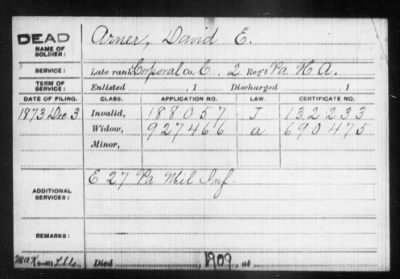 DEAD
NAME OF SOLDIER: Arner, David E.
SERVICE: Late rank Corporal Co. E, 2 Reg't Pa H A.
TERM OF SERVICE: Enlisted , 1 Discharged , 1
DATE OF FILING. CLASS. APPLICATION NO. LAW. CERTIFICATE NO.
1873 Dec 3 Invalid, 188057 J 132233
Widow, 927466 a 690475
Minor,
ADDITIONAL SERVICES: E 27 Pa Mil Inf.
REMARKS:
Died 1909, at